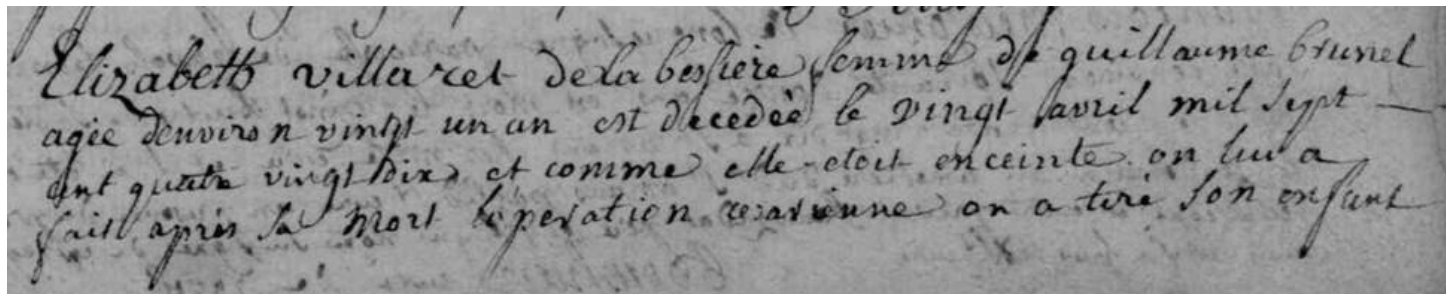 Elizabeth villaret de la bessiere femme de guillaume brunel
agée denviron vingt un an est decedèe le vingt avril mil sept
cent quatre vingt dix et comme elle etoit enceinte on lui a
fait après sa mort l'operation cesarienne on a tiré son enfant